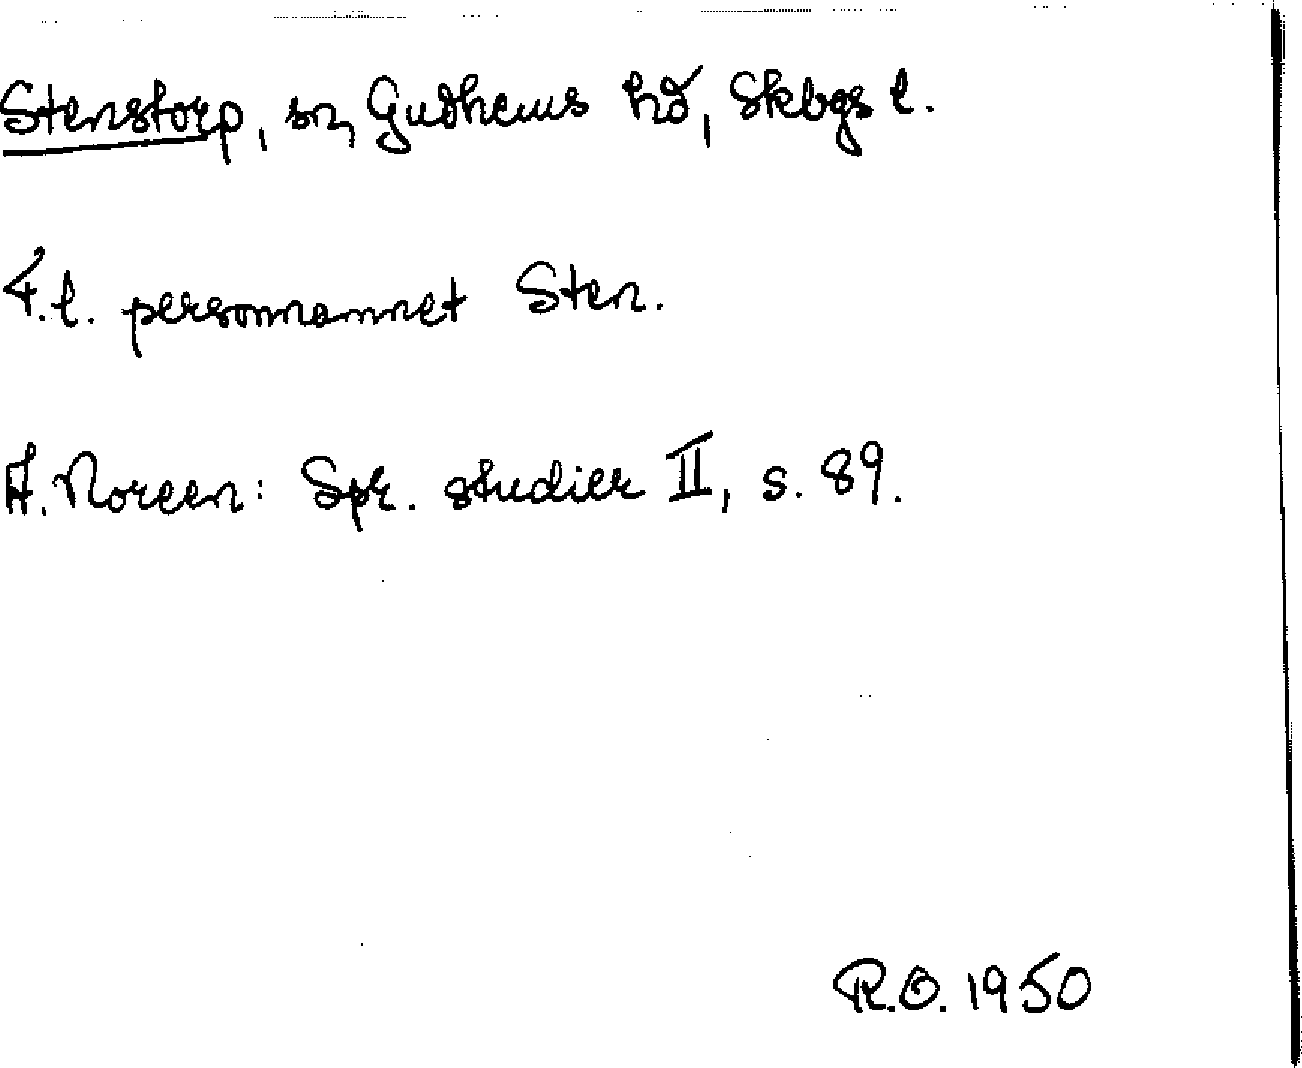 Stenstorp, sn, Gudhems hd, Skbgs l.
F.l. personnamnet Sten.
A. Noreen: Spr. studier II, s. 89.
R.O. 1950